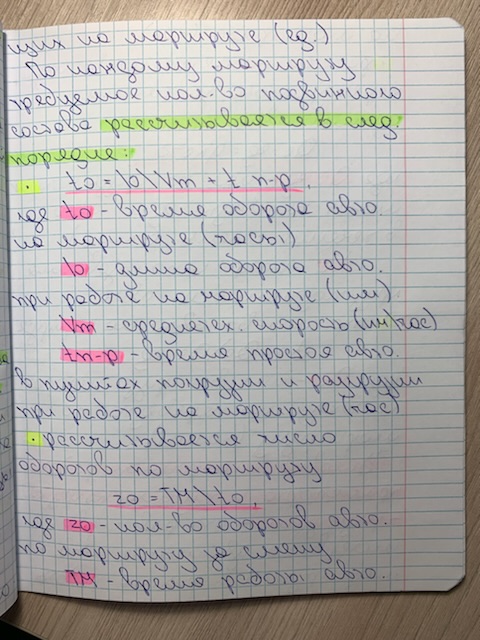 щих на маршруте (ед.)
По каждому маршруту
требуемое кол-во подвижного
состава рассчитывается в след.
порядке:
• to = lo\Vm + t п-р,
где to - время оборота авто.
на маршруте (часы)
lo - длина оборота авто.
при работе на маршруте (км)
Vm - среднетех. скорость (км\час)
tп-р - время простоя авто.
в пунктах погрузки и разгрузки
при работе на маршруте (час)
• рассчитывается число
оборотов по маршруту
zo = Tн\to,
где zo - кол-во оборотов авто.
по маршруту за смену
Tн - время работы авто.